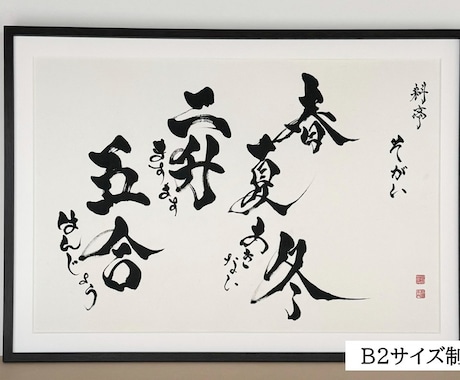 料亭
そがい
春夏冬
あきない
二升
ますます
五合
はんじょう
B2サイズ制